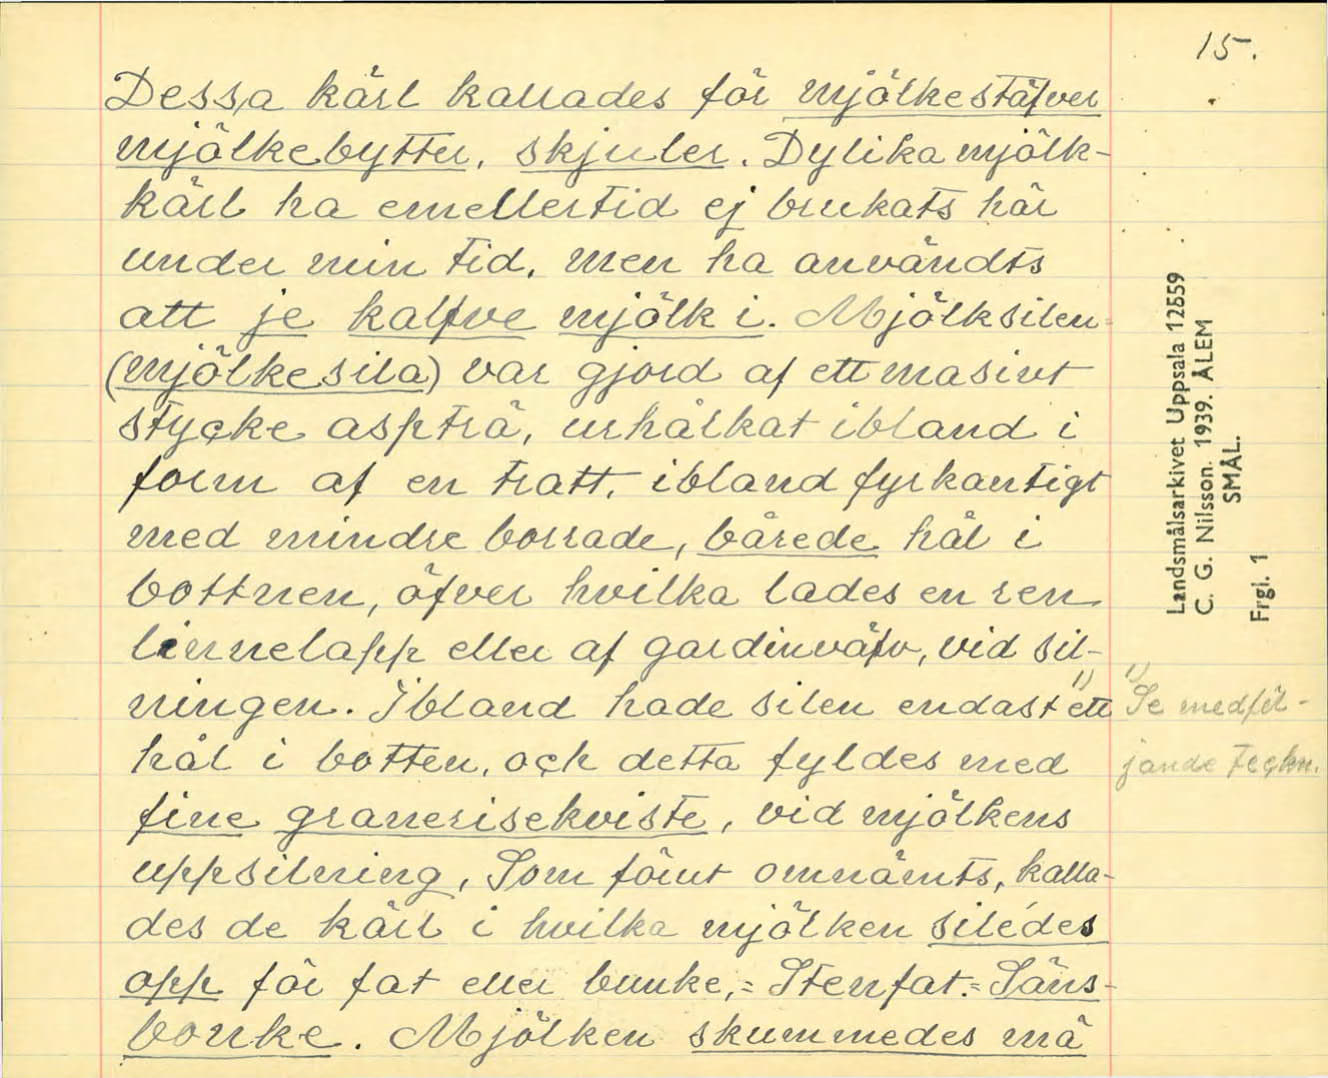 15.
Dessa kärl kallades för mjölkestäfver
mjölkebytter, skjuler. Dylika mjölk-
kärl ha emellertid ej brukats här
under min tid, men ha användts
att je kalfve mjölk i. Mjölksilen
(mjölkesila) var gjord af ett masivt
stycke aspträ, urhålkat ibland i
form af en tratt, ibland fyrkantigt
med mindre borrade, bårede hål i
bottnen, öfver hvilka lades en ren
linnelapp eller af gardinväfv, vid sil-
ningen. Ibland hade silen endast 1) ett
hål i botten, och detta fyldes med
fine granerisekviste, vid mjölkens
uppsilning, Som förut omnämts, kalla-
des de kärl i hvilka mjölken silédes
opp för fat eller bunke,= Stenfat.= Säns-
bonke. Mjölken skummedes mä
1) Se medföl-
jande teckn.
Landsmålsarkivet Uppsala 12559
C. G. Nilsson. 1939. ÅLEM
SMÅL.
Frgl. 1